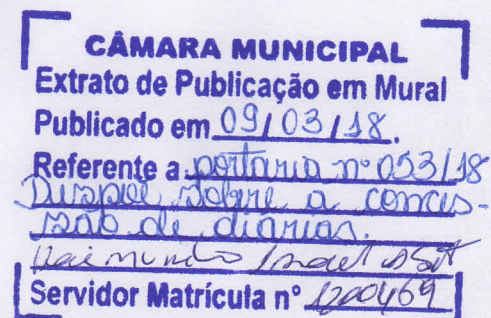 CÂMARA MUNICIPAL
Extrato de Publicação em Mural
Publicado em 09/03/18.
Referente a portaria nº 053/18
Dispõe sobre a conces-
são de diárias.
Raimundo Israel
Servidor Matrícula nº 1200469